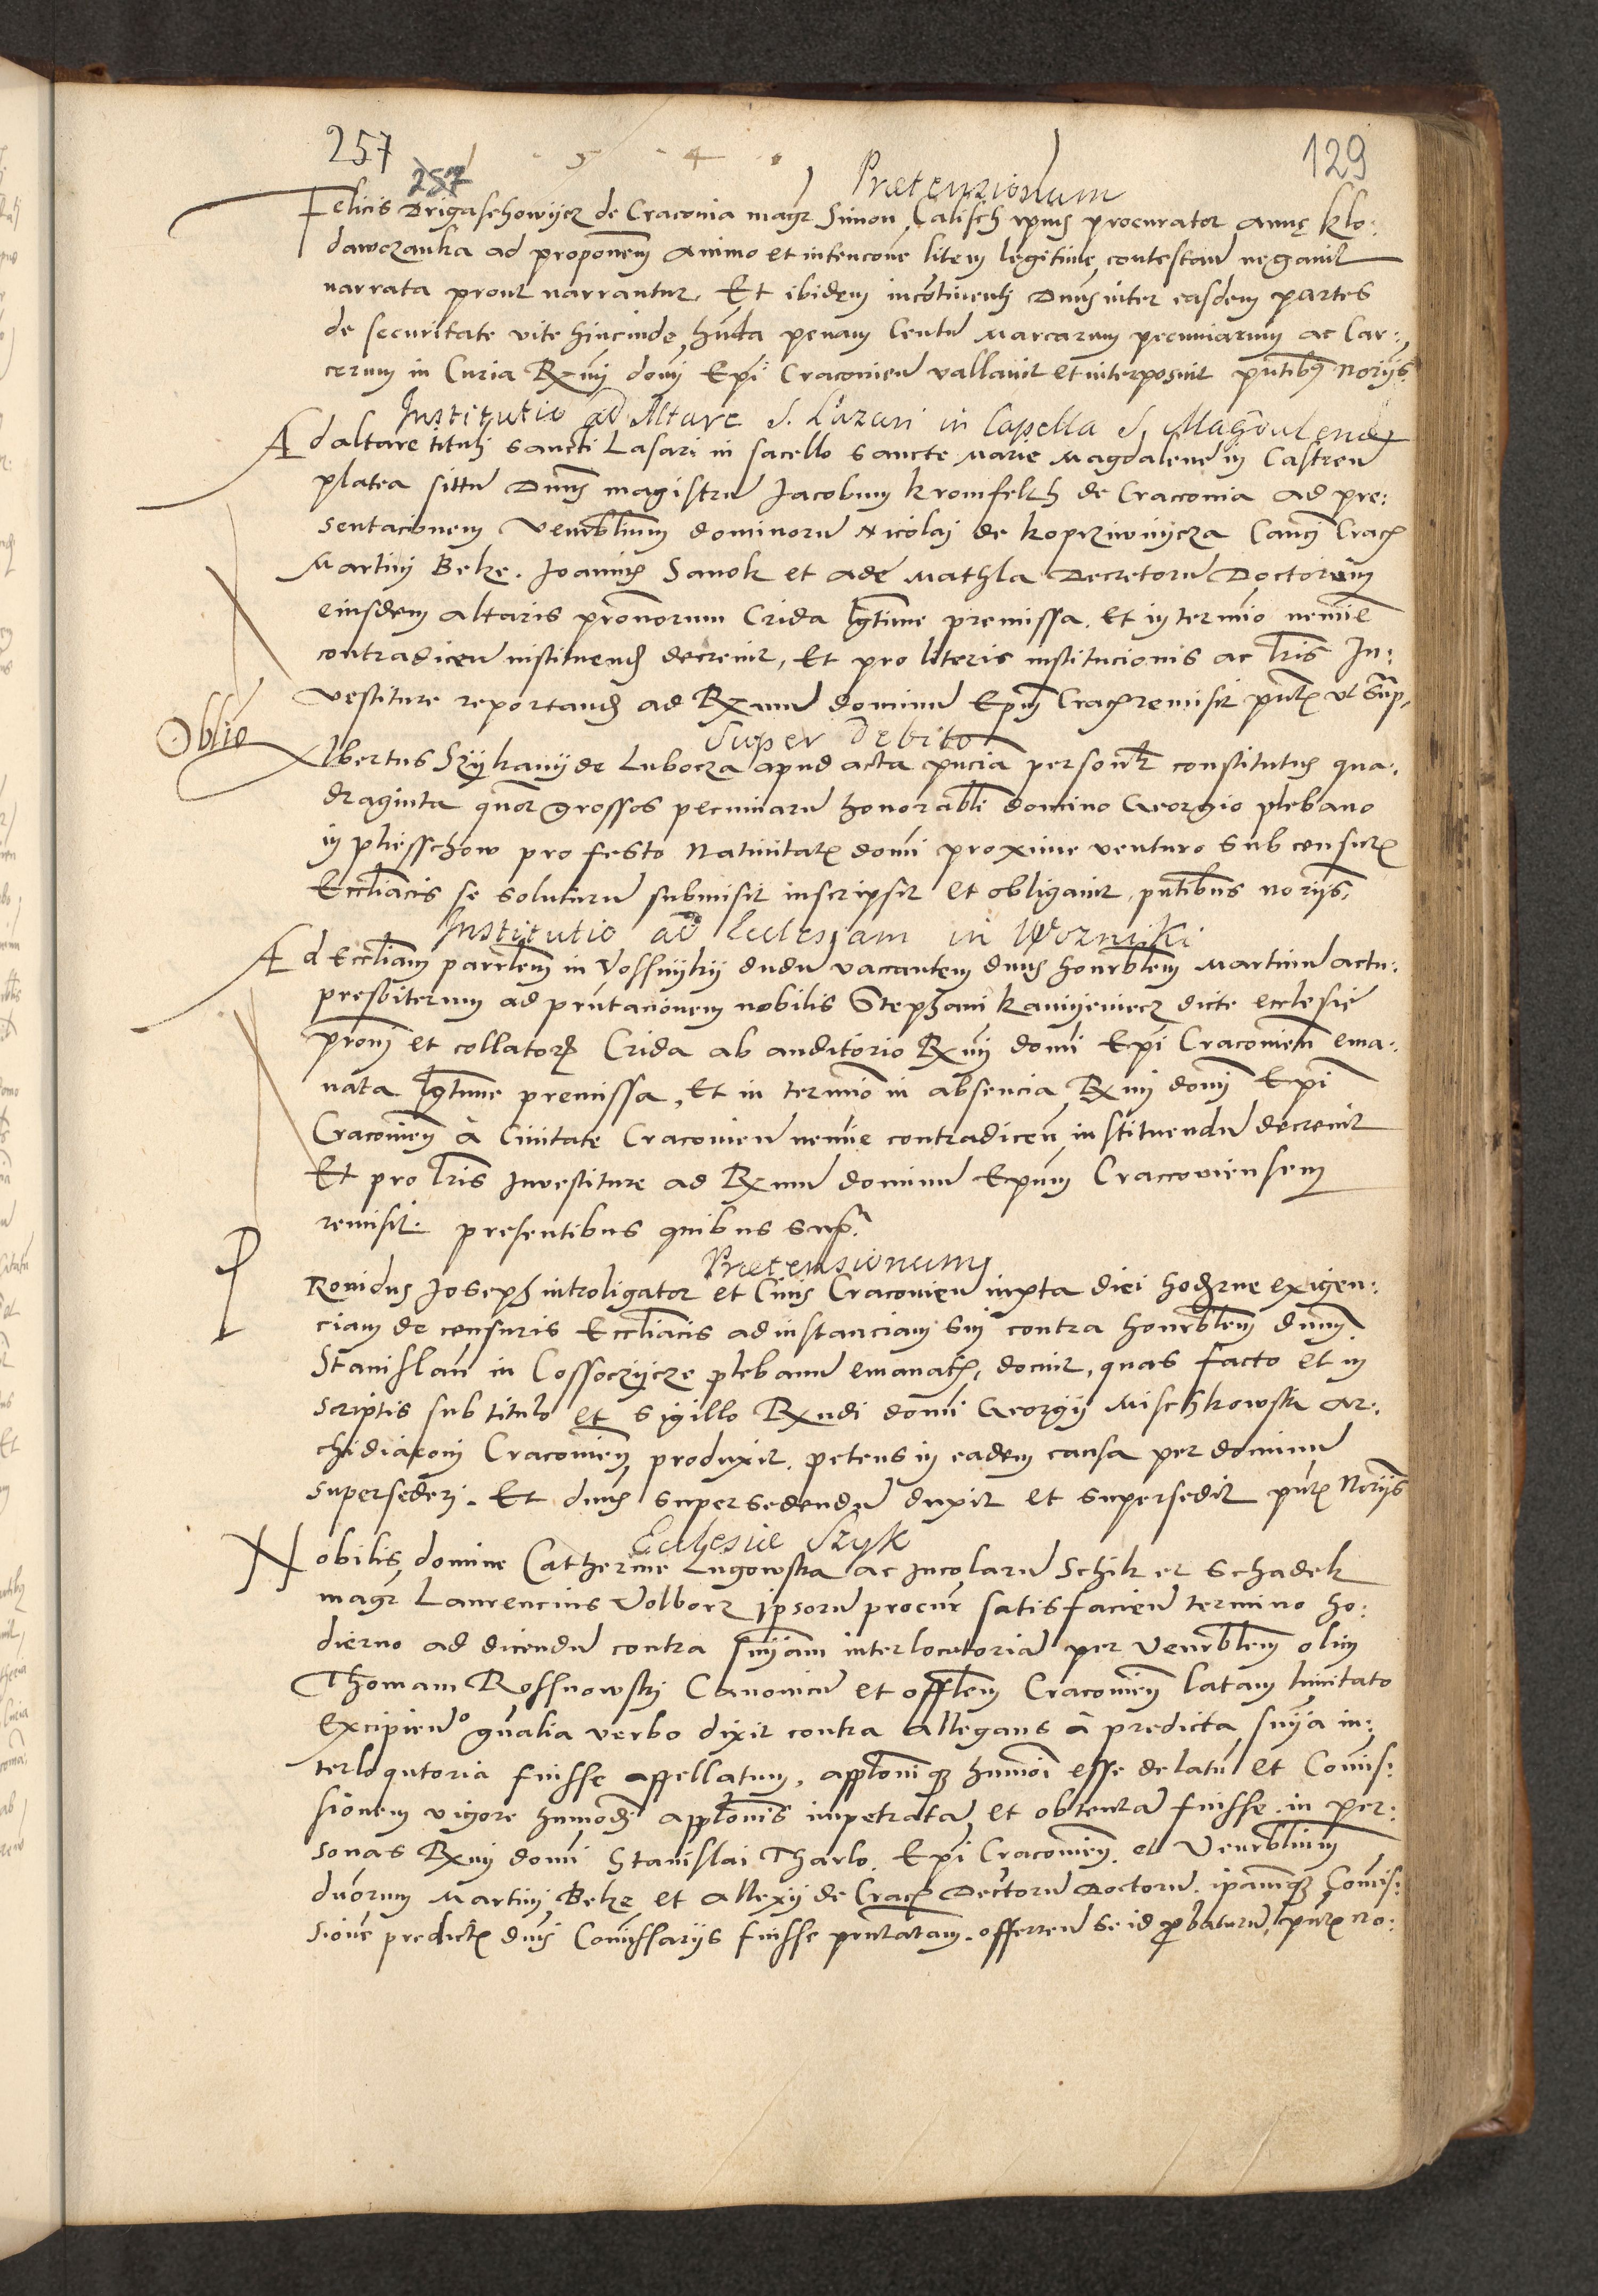 257
129
1 5 4 4
257
Prætenzionum
Felicis Drigaschowijcz de Craconia magr Simon Calisch ipius procurator annę Klo:
dawczanka ad proponem animo et intencone litem legitime contestan negauit
narrata prout narrantur. Et ibidem incotinenti Dnus inter easdem partes
de securitate vite hincinde sub pena Centu Marcarum pecuniarum ac Car:
cerum in Curia Rxmi domi Epi Craconien vallauit et interposuit pntibus Norijs.
Institutio ad Altare S. Lazari in Capella S. Magdalenæ
Ad altare tituli Sancti Lasari in sacello Sancte Marie Magdalene in Castren
platea situ Dnus magistru Jacobum Kromfelth de Cracouia ad pre:
sentacionem Venrblium dominoru Nicolaj de Koprziwnijcza Canci Crach
Martini Belze. Joannis Sanok et ade Mathla Decretoru Doctorum
eiusdem altaris pronorum Crida lgtime premissa. et in termio nemie
contradicen instituend decreuit, Et pro literis institucionis ac lris In:
vestiture reportand ad Rxmu dominu Epum Crach remisit pntes vt supr.
Oblio
Super Debito
Albertus Szijkanij de Lubocza apud acta pncia personlr constitutus qua.
draginta quor grossos pecuniaru honorabli domino Georgio plebano
in pliesschow pro festo Natiuitatis domi proxime venturo sub censuris
Eccliacis se soluturu submisit inscripsit et obligauit, pntibus norijs.
Institutio ad Ecclesiam in Wozniki
Ad eccliam parrlem in Vossnijkij dudu vaccantem dnus honrblem Martinu actu.
presbiterum ad pruntacionem nobilis Stephani Kamijeniecz dicte ecclesie
pronj et collatoris Crida ab auditorio Rxmj domi Epi Craconien ema:
nata lgtime premissa, et in termio in absencia Rxmi domj Epi
Craconien à Ciuitate Craconien nemie contradicen instituendu decreuit
Et pro lris Inuestiture ad Rxmu dominu Epum Craccouiensem
remisit. presentibus quibus supr.
Prætensionum
Prouidus Joseph introligator et Ciuis Craconien iuxta diei hodierne exigen:
ciam de censuris Eccliacis ad instanciam sui contra honrblem dnum
Stanislau in Cossoczijcze plebanu emanatis, docuit, quas facto et in
scriptis sub titulo et sigillo Rxndi domi Georgij Mischkowski ar:
chidiaconi Craconien produxit. petens in eadem causa per dominu
supersederj. Et dnus supersedendu duxit et supersedit pntes Norijs
Ecclesiæ Szyk
Nobilis domine Catherine Lugowska ac Incolaru Schik et Schadek
magr Laurencius Volborz ipsoru procur satisfacien termino ho:
dierno ad dicendu contra snijam interlocutoria per Venrblem olim
Thomam Rossnowski Canonicu et offlem Craconien latam limitato
excipien gnalia verbo dixit contra allegans à predicta snija in:
terloqutoria fuisse appellatum, applonique humoi esse delatu et Comis:
sionem vigore humodi applonis impetrata et obtenta fuisse. in per:
sonas Rxmi domi Stanislai Tharlo. Epi Craconien. et Venrblium
duorum Martini Belze et allexij de Crach Dectoru Doctoru. ipamque Comis:
sione predictis dnis Comissarijs fuisse pruntatam. offerren se id probaturu, pntes no: